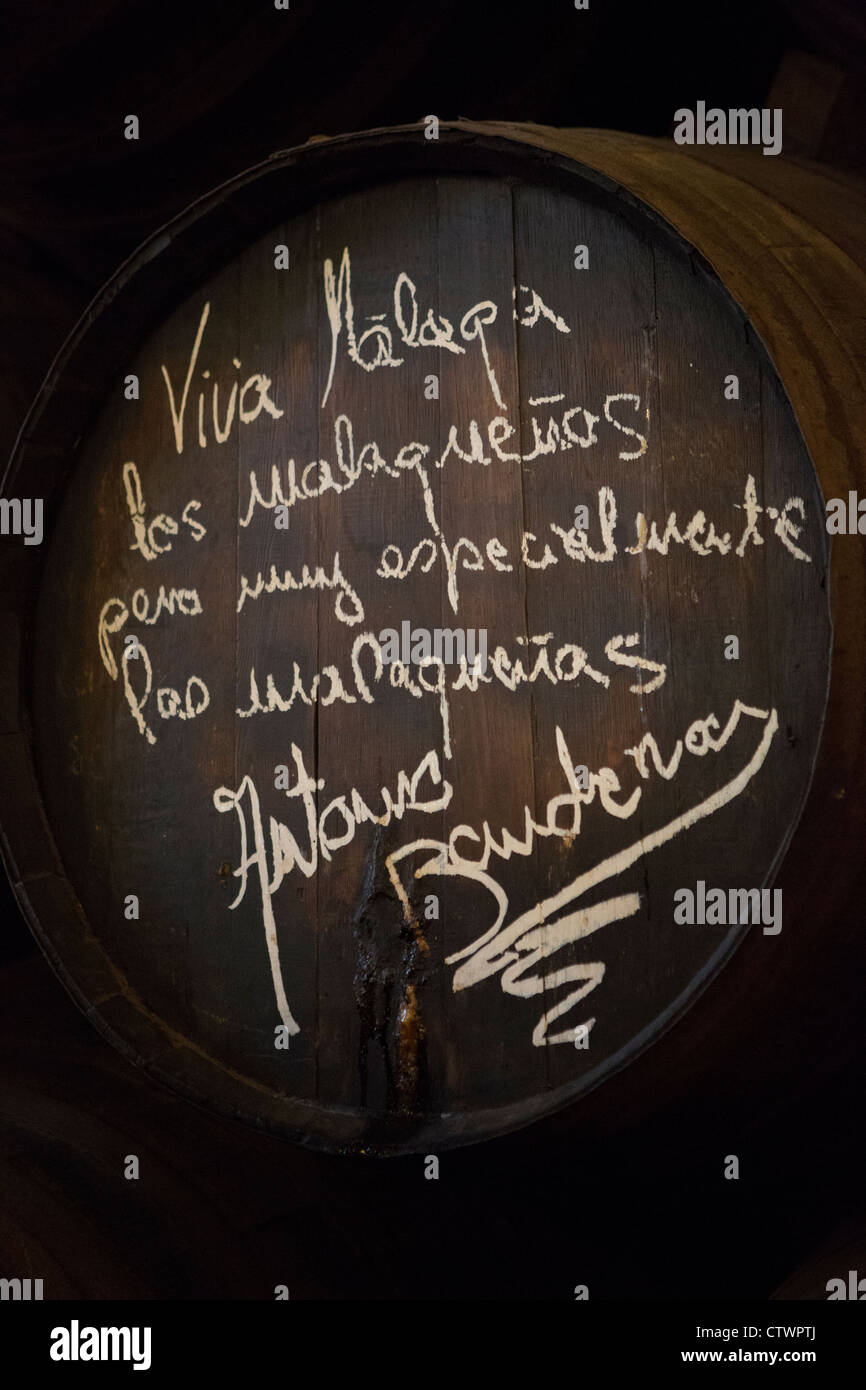 Viva Málaga
los malagueños
pero muy especialmente
las malagueñas
Antonio
Banderas
alamy
alamy
alamy
Image ID: CTWPTJ
www.alamy.com